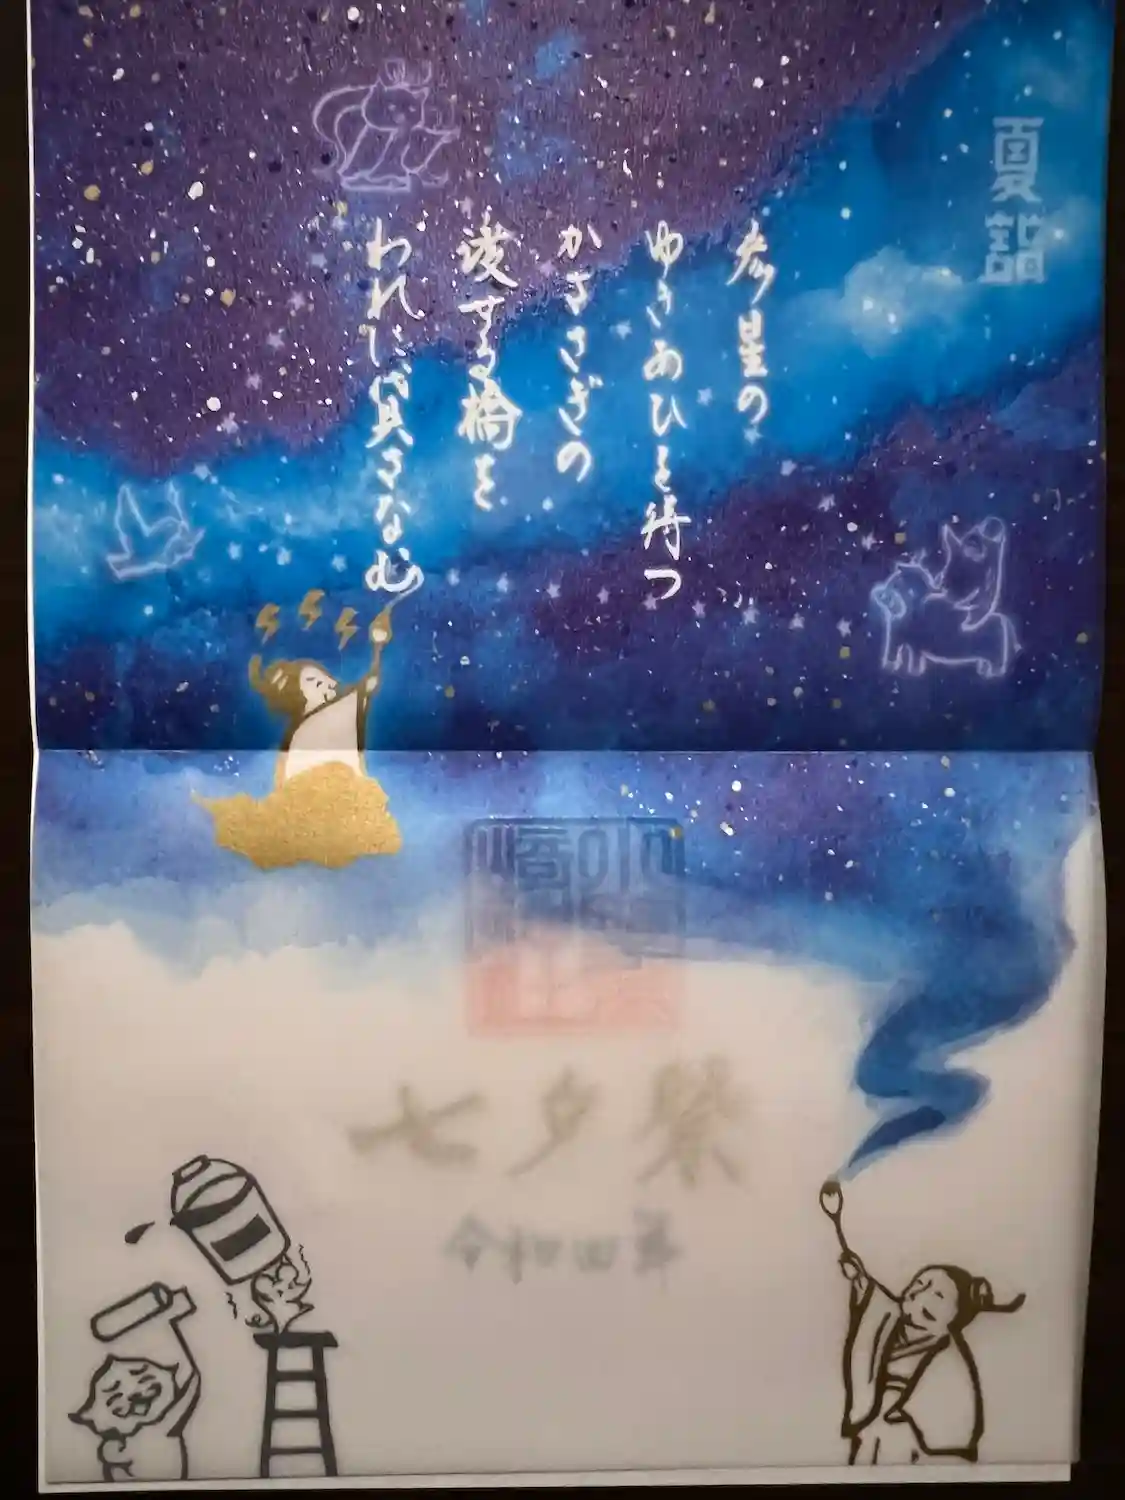 夏詣
彦星の
ゆきあひを待つ
かささぎの
渡せる橋を
われに貸さなむ
七夕祭
令和四年